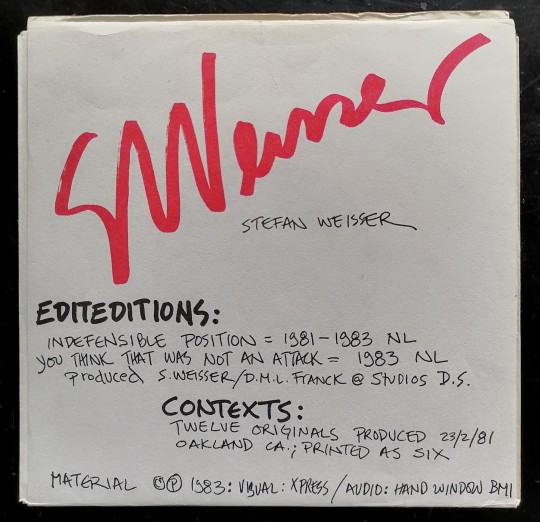 SWeisser
STEFAN WEISSER
EDITEDITIONS:
INDEFENSIBLE POSITION = 1981-1983 NL
YOU THINK THAT WAS NOT AN ATTACK = 1983 NL
Produced S.WEISSER/D.M.L. FRANCK @ STUDIOS D.S.
CONTEXTS:
TWELVE ORIGINALS PRODUCED 23/2/81
OAKLAND CA.; PRINTED AS SIX
MATERIAL ©℗ 1983: VISUAL: XPRESS / AUDIO: HAND WINDOW BMI